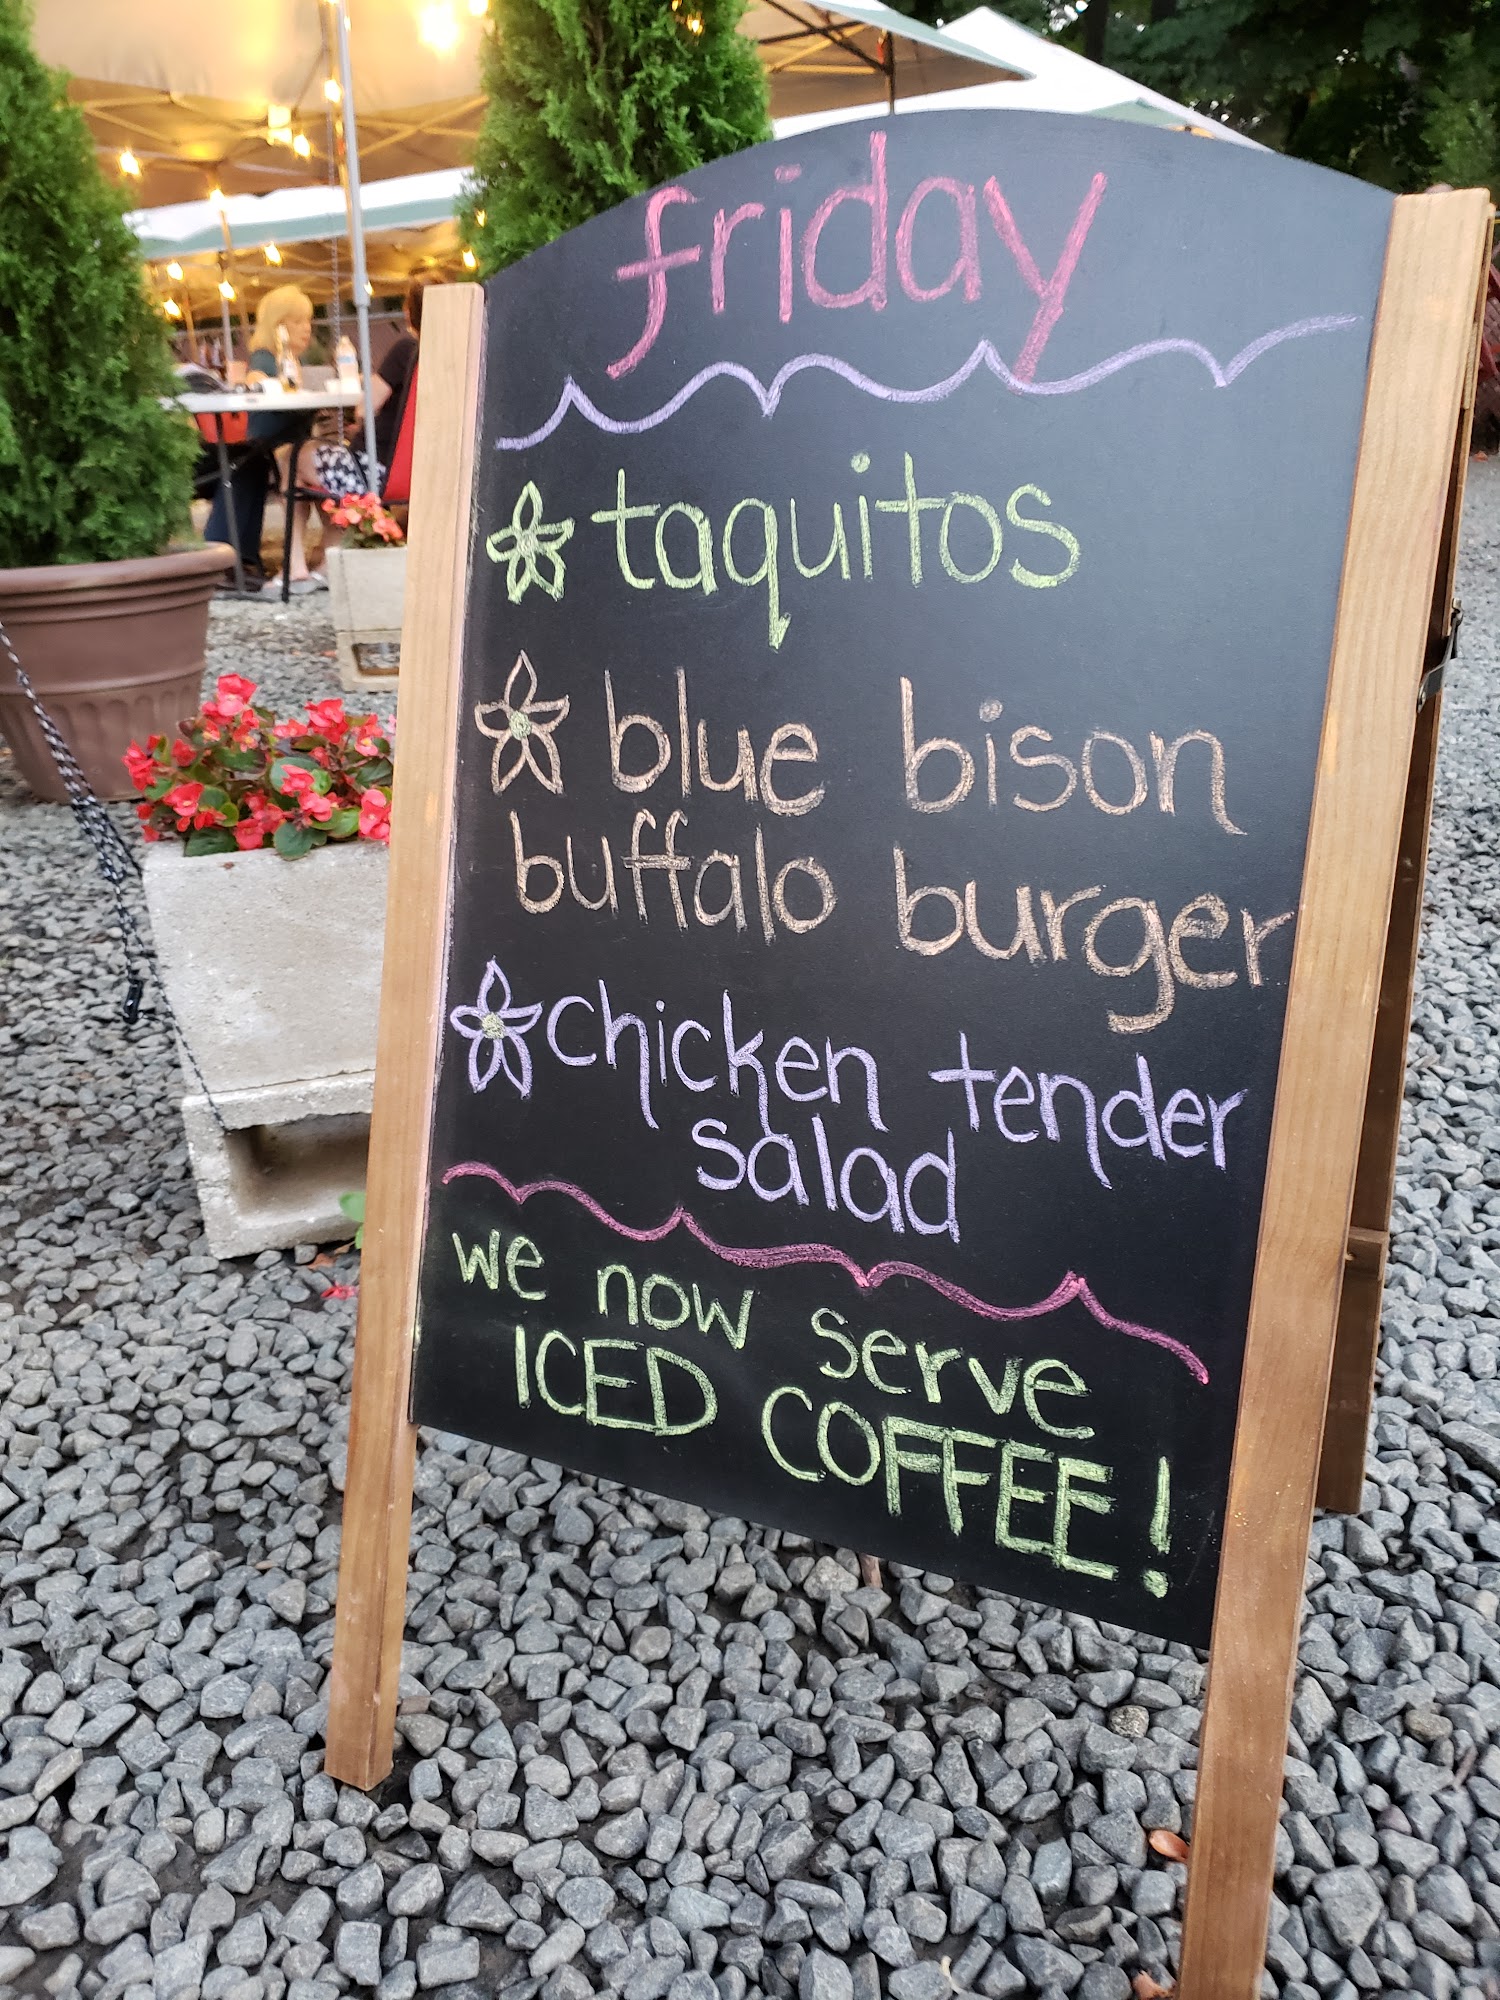 friday
taquitos
blue bison
buffalo burger
chicken tender
salad
we now serve
ICED COFFEE!